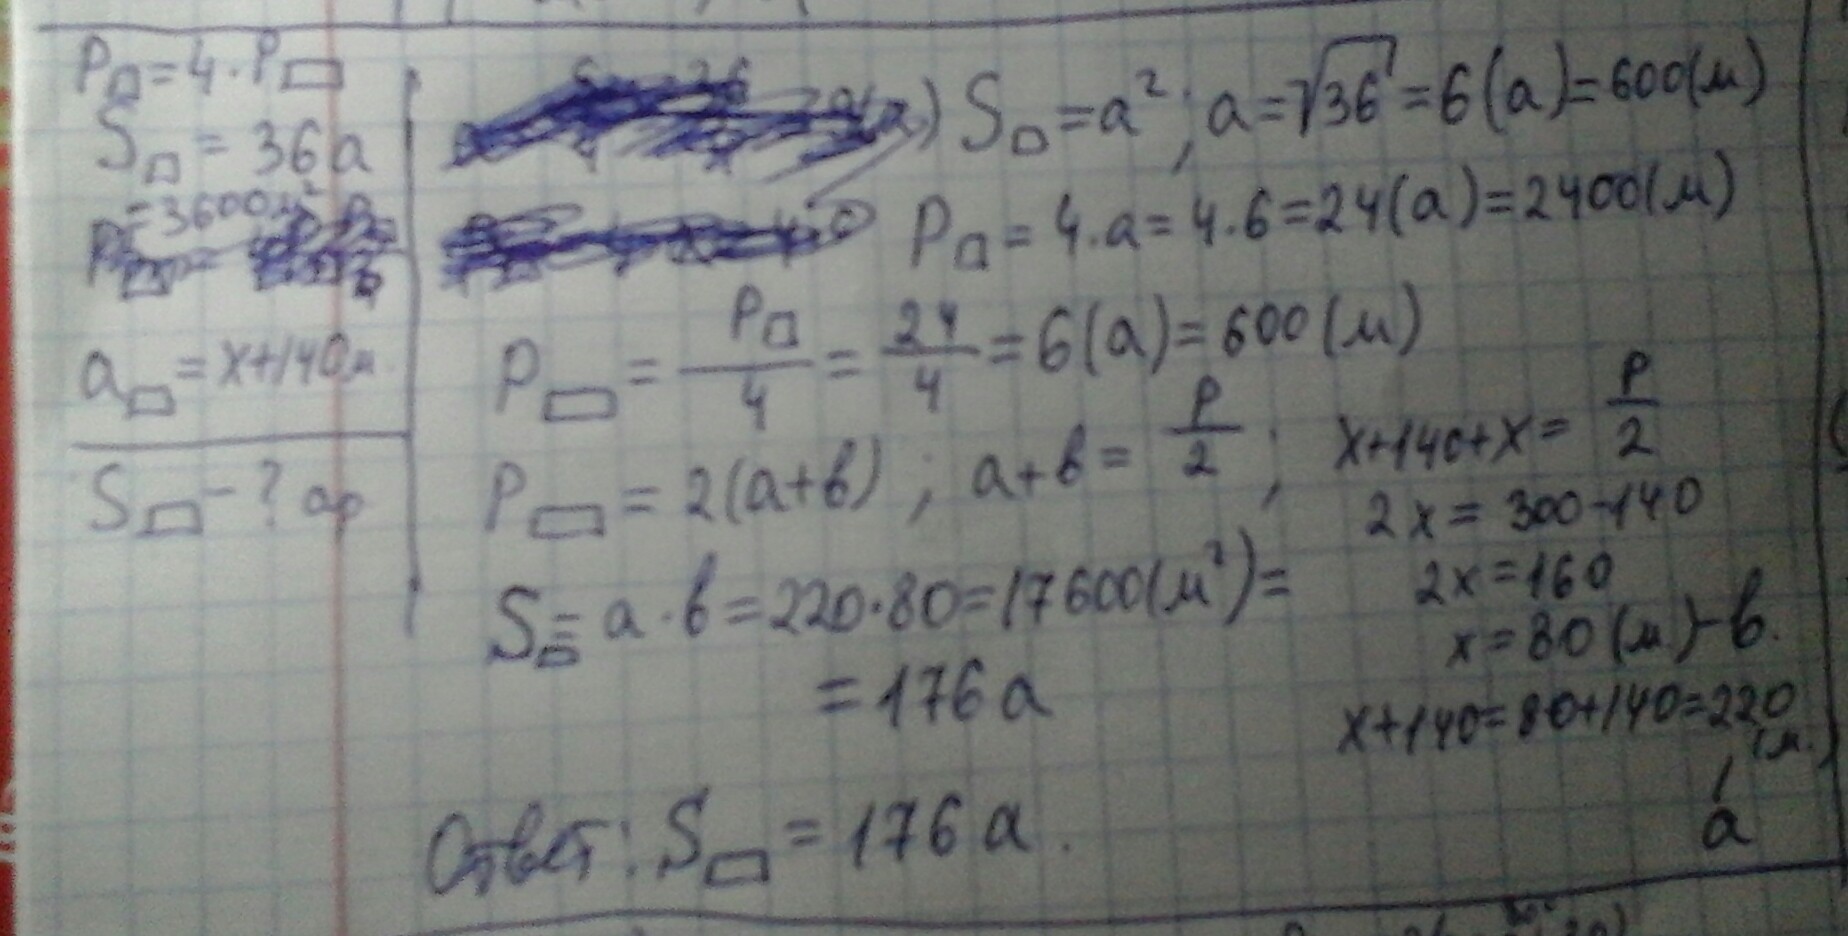 P□ = 4·P▭
S□ = 36а
= 3600м²
a▭ = x+140м
S▭ - ? ар
S□ = a²; a = √36 = 6(а) = 600(м)
P□ = 4·a = 4·6 = 24(а) = 2400(м)
P▭ = P□/4 = 24/4 = 6(а) = 600(м)
P▭ = 2(a+b); a+b = P/2; x+140+x = P/2
2x = 300-140
2x = 160
x = 80(м.) - b.
x+140 = 80+140 = 220 (м.)
a
S▭ = a·b = 220·80 = 17600(м²) =
= 176а
Ответ: S▭ = 176а.